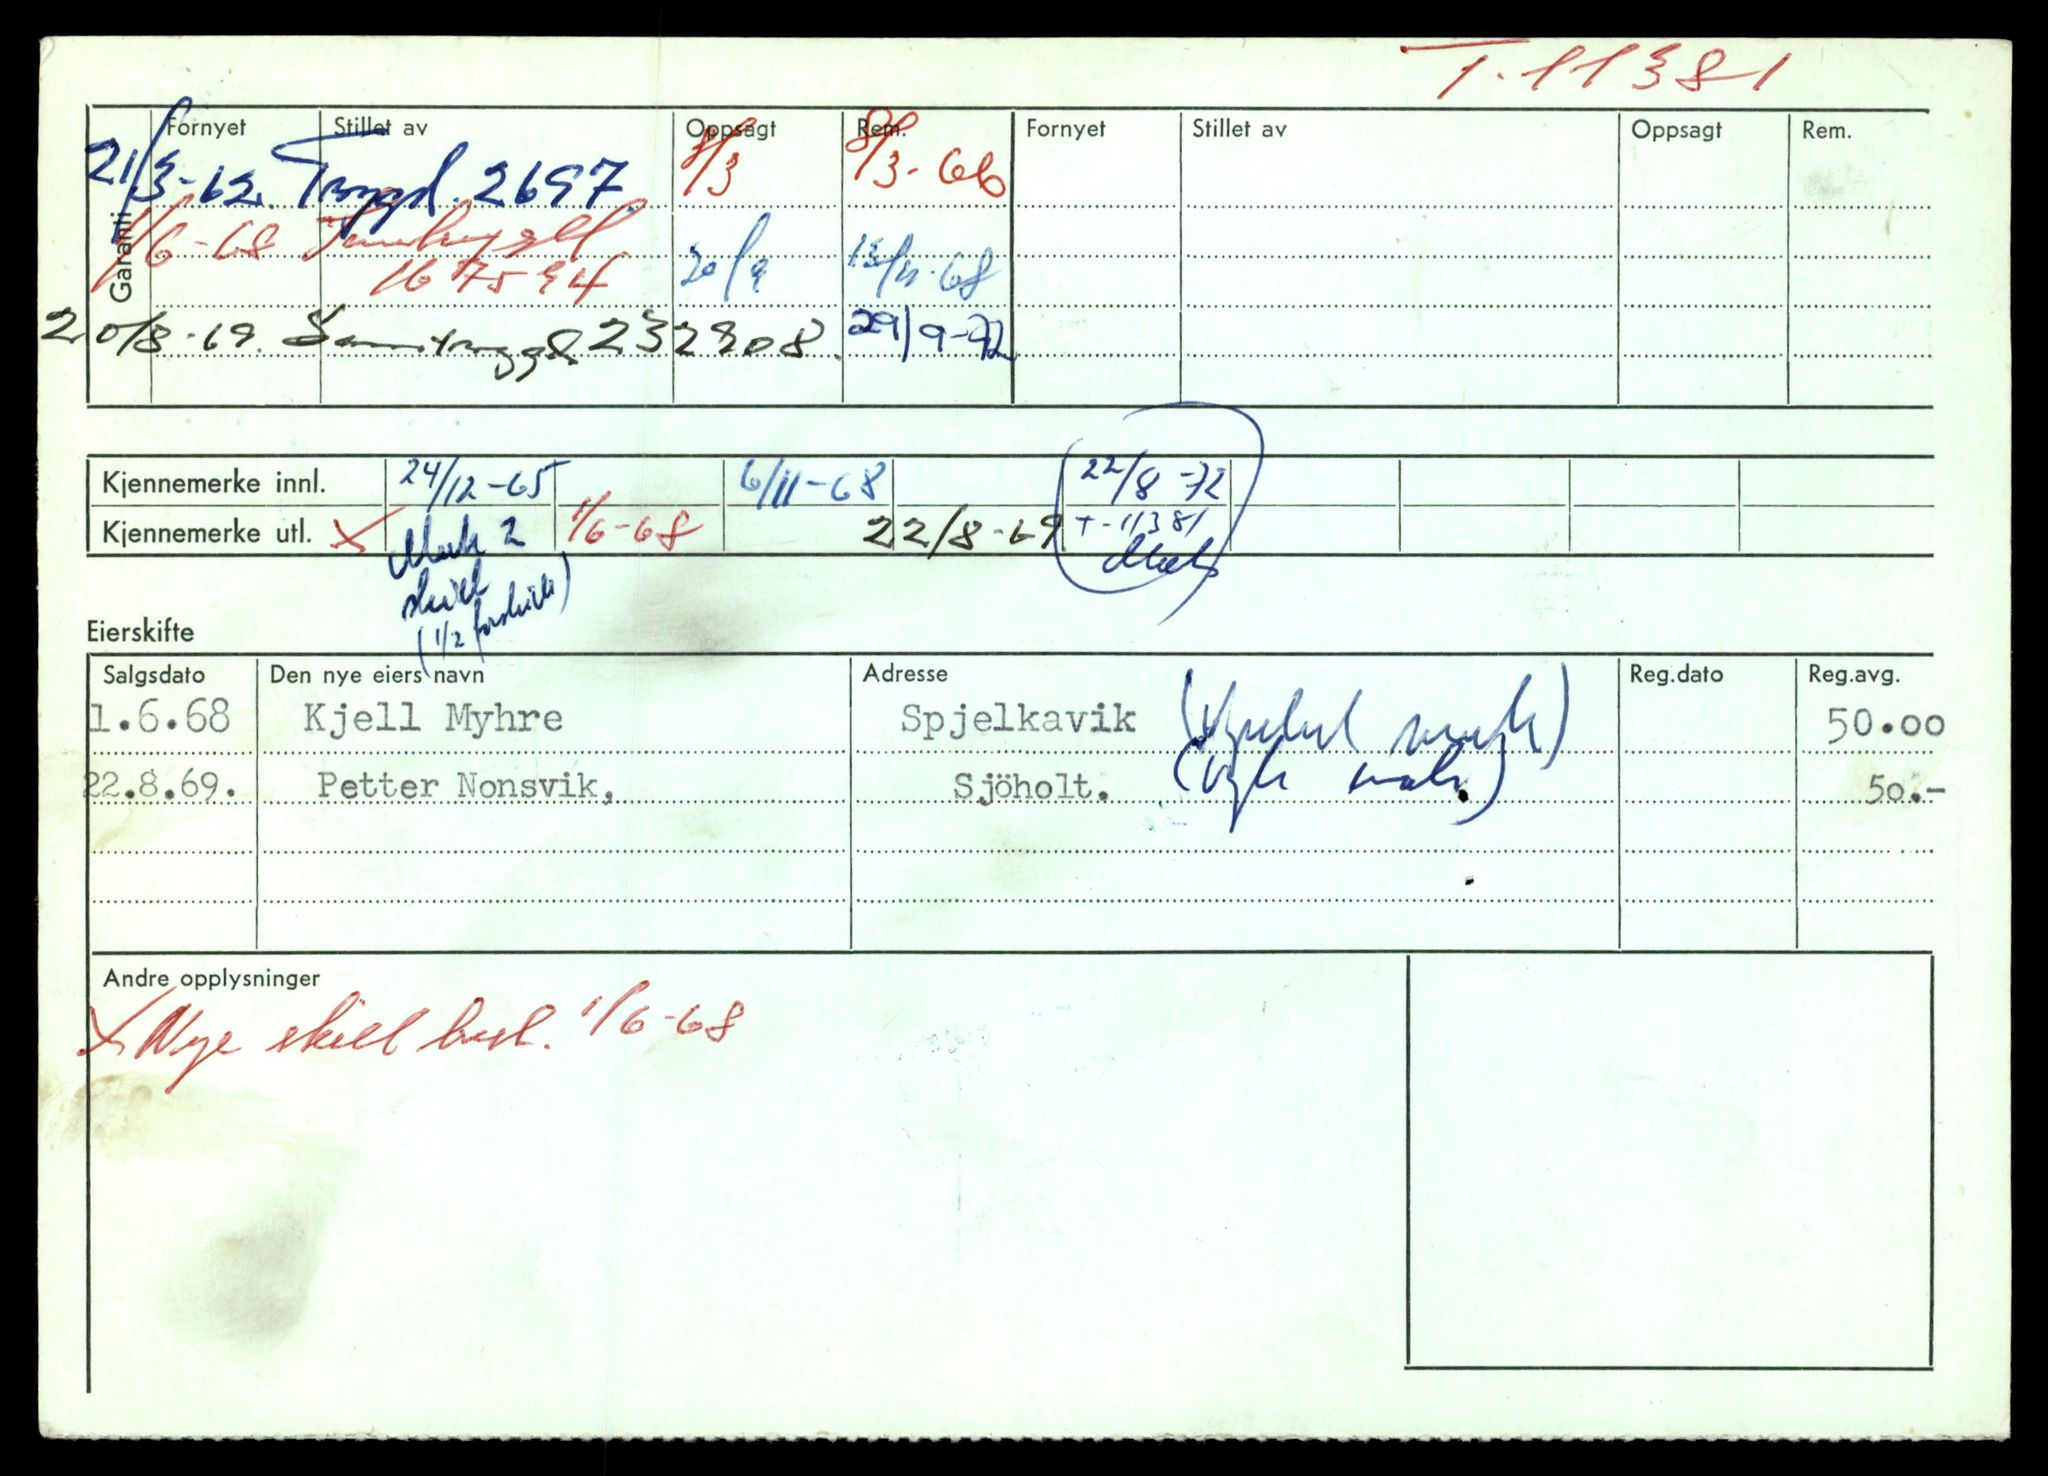 T. 11381
Fornyet Stillet av Oppsagt Rem. Fornyet Stillet av Oppsagt Rem.
Garanti
21/3-62. Trygd. 2697. 8/3 8/3-66
1/6-68
167594 20/9 68
20/8-69. Samtrygd 232908. 29/9-72
Kjennemerke innl. 24/12-65 6/11-68 22/8-72
Kjennemerke utl. X Merke 2 1/6-68 22/8-69 T-11381
skilt
(1/2
Eierskifte
Salgsdato Den nye eiers navn Adresse Reg.dato Reg.avg.
1.6.68 Kjell Myhre Spjelkavik 50.00
22.8.69. Petter Nonsvik, Sjöholt. 50.-
Andre opplysninger
X Nye skilt best. 1/6-68